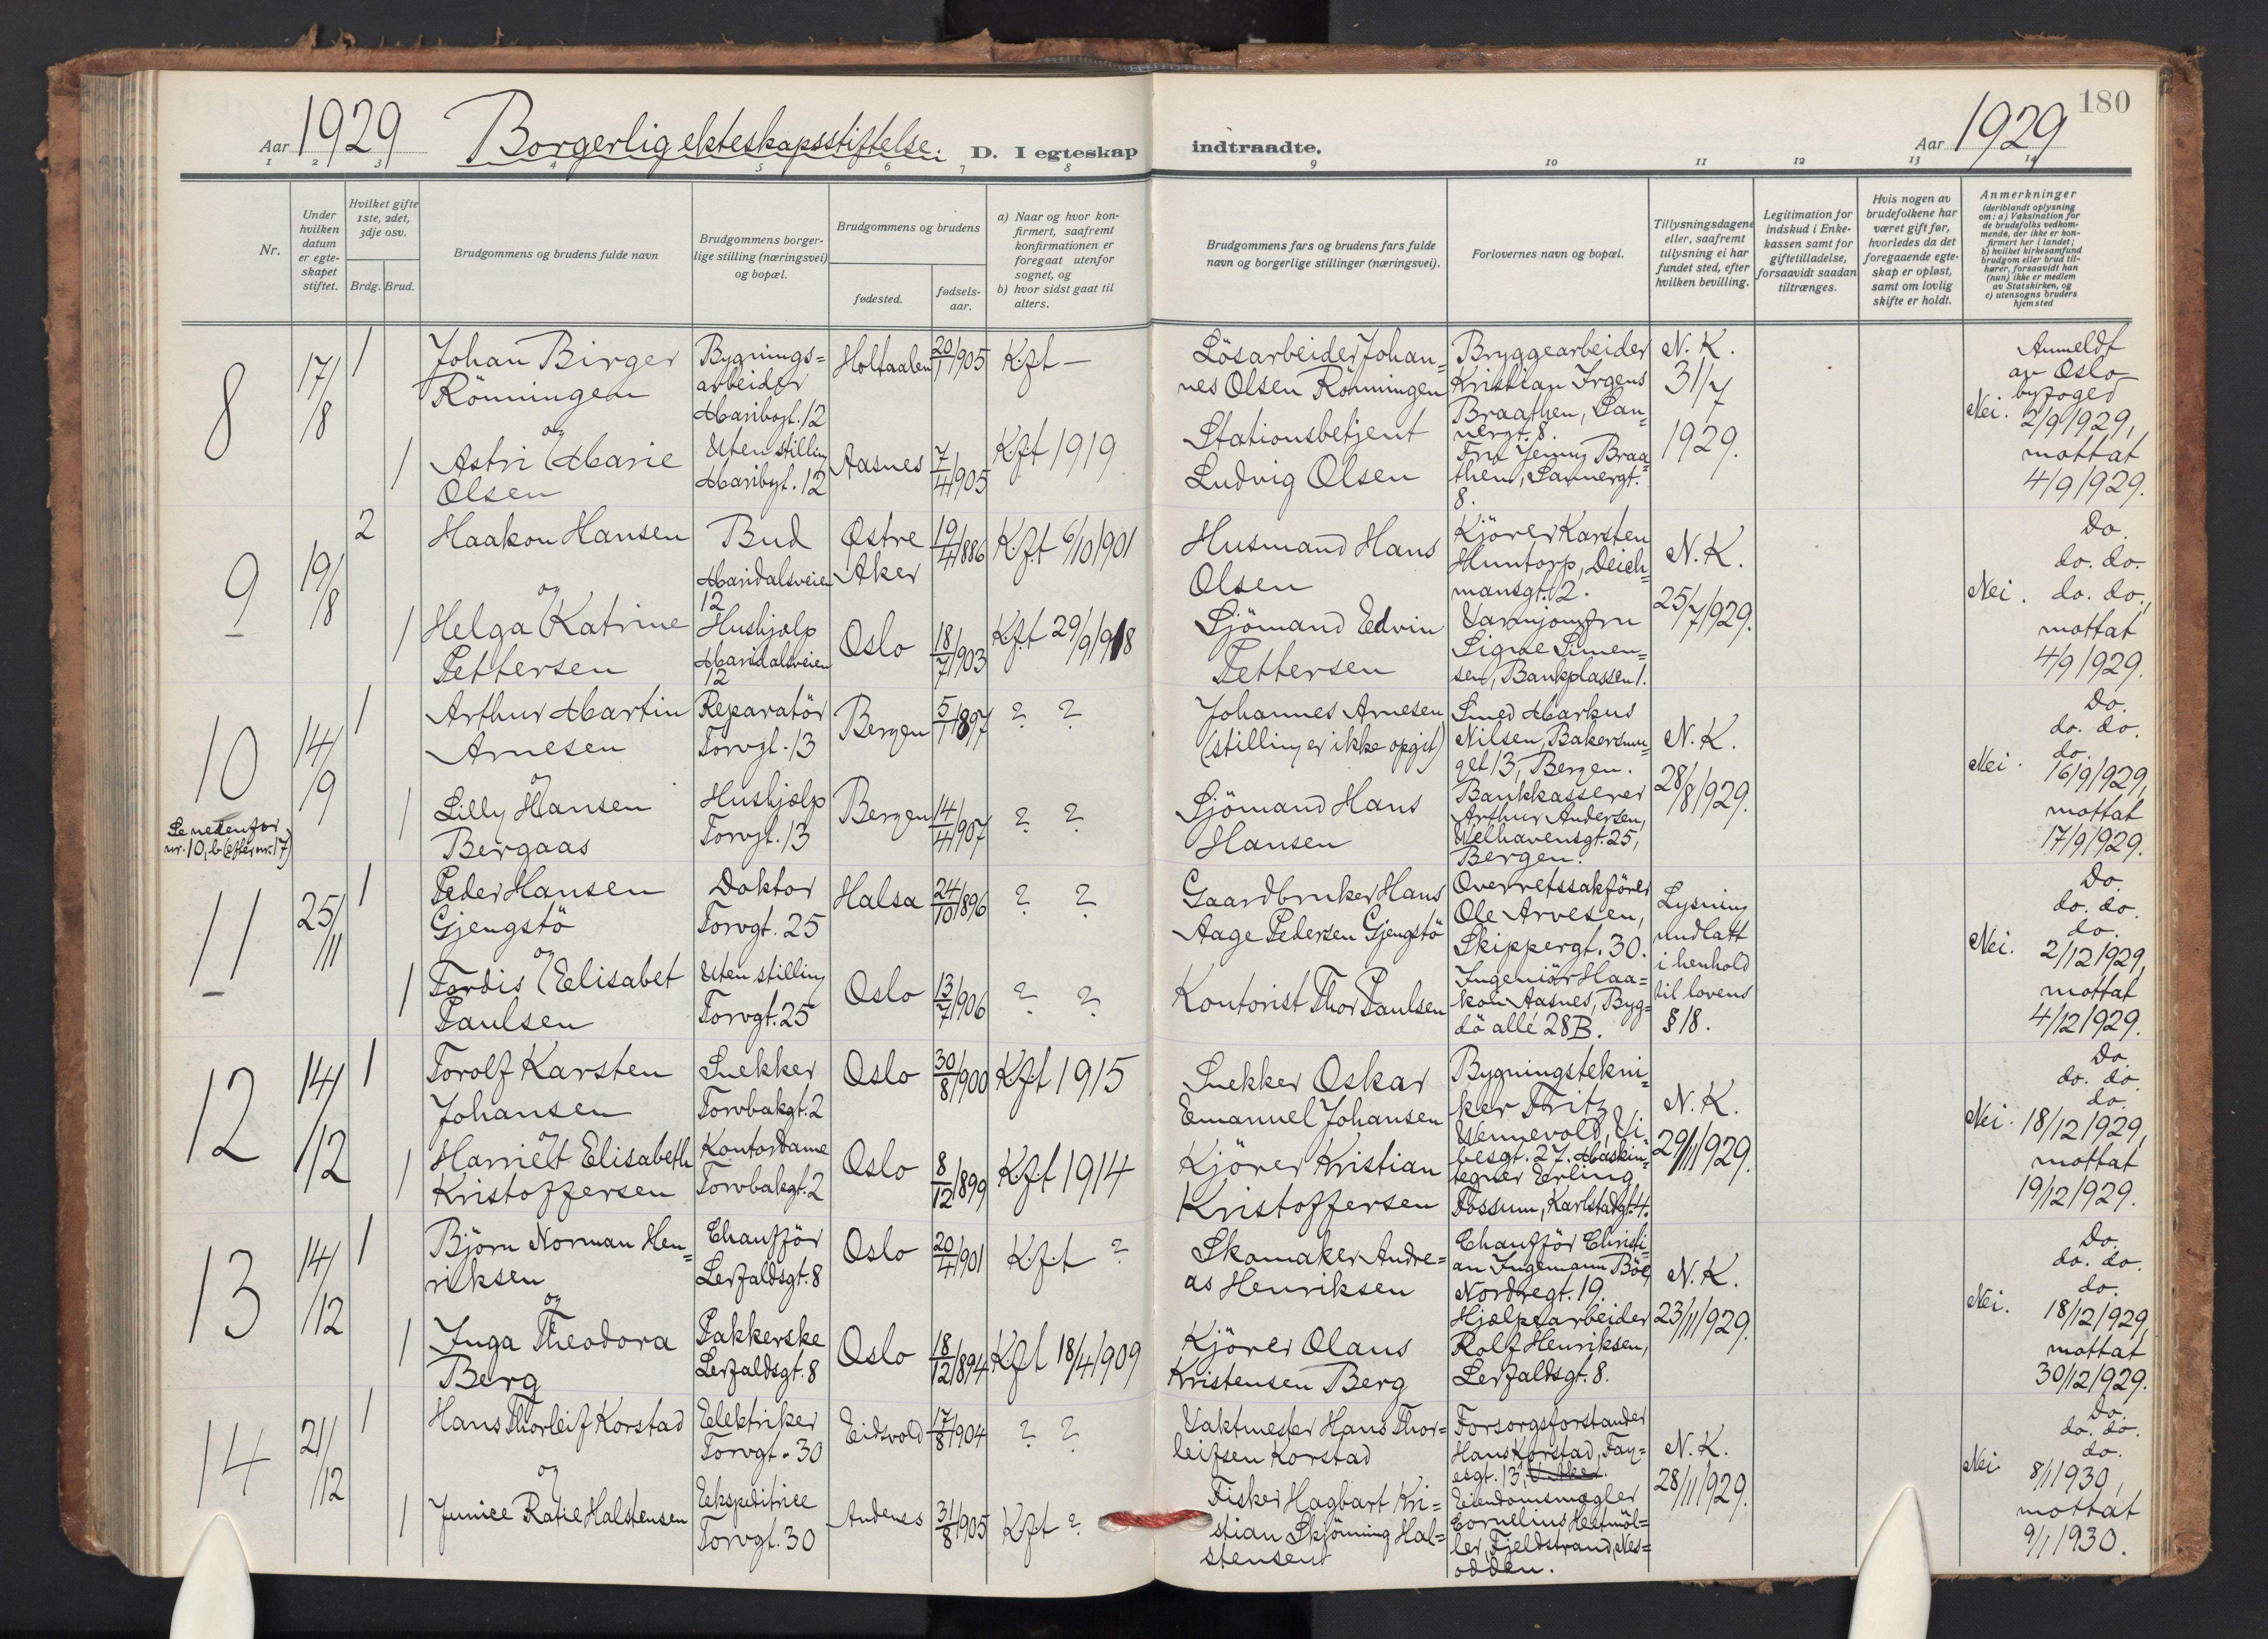 180
Aar 1929 Borgerlig ekteskapsstiftelse. D. I egteskap indtraadte. Aar 1929
1 2 3 4 5 6 7 8 9 10 11 12 13 14
Nr.
Under
hvilken
datum
er egte-
skapet
stiftet.
Hvilket gifte
1ste, 2det,
3dje osv.
Brdg. Brud.
Brudgommens og brudens fulde navn
Brudgommens borger-
lige stilling (næringsvei)
og bopæl.
Brudgommens og brudens
fødested.
fødsels-
aar.
a) Naar og hvor kon-
firmert, saafremt
konfirmationen er
foregaat utenfor
sognet, og
b) hvor sidst gaat til
alters.
Brudgommens fars og brudens fars fulde
navn og borgerlige stillinger (næringsvei).
Forlovernes navn og bopæl.
Tillysningsdagene
eller, saafremt
tillysning ei har
fundet sted, efter
hvilken bevilling.
Legitimation for
indskud i Enke-
kassen samt for
giftetilladelse,
forsaavidt saadan
tiltrænges.
Hvis nogen av
brudefolkene har
været gift før,
hvorledes da det
foregaaende egte-
skap er opløst,
samt om lovlig
skifte er holdt.
Anmerkninger
(deriblandt oplysning
om: a) Vaksination for
de brudefolks vedkom-
mende, der ikke er kon-
firmert her i landet;
b) hvilket kirkesamfund
brudgom eller brud til-
hører, forsaavidt han
(hun) ikke er medlem
av Statskirken, og
c) utensogns bruders
hjemsted
8
17/8
1
Johan Birger
Rönningen
og
1
Astri Marie
Olsen
Bygnings=
arbeider
Maribogt. 12
Uten stilling
Maribogt. 12
Holtaalen
20/1 1905
Kft —
Aasnes
7/4 1905
Kft 1919
Lösarbeider Johan=
nes Olsen Rönningen
Stationsbetjent
Ludvig Olsen
Bryggearbeider
Kristian Irgens
Braathen, San=
nergt. 8.
Fru Jenny Braa=
then, Sannergt.
8.
N. K.
31/7
1929.
Anmeldt
av Oslo
byfoged
Nei. 2/9 1929,
mottat
4/9 1929.
9
19/8
2
Haakon Hansen
og
1
Helga Katrine
Pettersen
Bud
Maridalsveien
12
Hushjælp
Maridalsveien
12
Østre
Aker
19/4 1886
Kft 6/10 1901
Oslo
18/7 1903
Kft 29/9 1918
Husmand Hans
Olsen
Sjömand Edvin
Pettersen
Kjörer Karsten
Huntorp, Deich=
mansgt. 2.
Varmjomfru
Signe Simen=
sen, Bankplassen 1.
N. K.
25/7 1929.
Do.
do. do.
Nei. do. do.,
mottat
4/9 1929.
10
Se nedenfor
nr. 10, b (efter nr. 17)
14/9
1
Arthur Martin
Arnesen
og
1
Lilly Hansen
Bergaas
Reparatör
Torvgt. 13
Hushjælp
Torvgt. 13
Bergen
5/1 1897
? ?
Bergen
14/4 1907
? ?
Johannes Arnesen
(stilling er ikke opgit)
Sjömand Hans
Hansen
Smed Markus
Nilsen, Bakersmu=
get 13, Bergen.
Bankkasserer
Arthur Andersen,
Welhavensgt. 25,
Bergen.
N. K.
28/8 1929.
Do.
do. do.
do.
Nei. 16/9 1929,
mottat
17/9 1929.
11
25/11
1
Peder Hansen
Gjengstö
og
1
Tordis Elisabet
Paulsen
Doktor
Torvgt. 25
Uten stilling
Torvgt. 25
Halsa
24/10 1896
? ?
Oslo
13/7 1906
? ?
Gaardbruker Hans
Aage Pedersen Gjengstö
Kontorist Thor Paulsen
Overretssakförer
Ole Arvesen,
Skippergt. 30.
Ingeniör Haa=
kon Aasnes, Byg=
dö allé 28B.
Lysning
undlatt
i henhold
til lovens
§ 18.
Do.
do. do.
do.
Nei. 2/12 1929,
mottat
4/12 1929.
12
14/12
1
Torolf Karsten
Johansen
og
1
Harriet Elisabeth
Kristoffersen
Snekker
Torvbakgt. 2
Kontordame
Torvbakgt. 2
Oslo
30/8 1900
Kft 1915
Oslo
8/12 1899
Kft 1914
Snekker Oskar
Emanuel Johansen
Kjörer Kristian
Kristoffersen
Bygningstekni=
ker Fritz
Wennevold, Vi=
besgt. 27. Maskin=
tegner Erling
Fossum, Karlstadgt. 4.
N. K.
29/11 1929.
Do.
do. do.
do.
Nei. 18/12 1929,
mottat
19/12 1929.
13
14/12
1
Björn Norman Hen=
riksen
og
1
Inga Theodora
Berg
Chaufför
Lerfaldsgt. 8
Pakkerske
Lerfaldsgt. 8
Oslo
20/4 1901
Kft ?
Oslo
18/12 1894
Kft 18/4 1909
Skomaker Andre=
as Henriksen
Kjörer Olaus
Kristensen Berg
Chauffør Christi=
an Ingemann Böe,
Nordregt. 19.
Hjælpearbeider
Rolf Henriksen,
Lerfaldsgt. 8.
N. K.
23/11 1929.
Do.
do. do.
do.
Nei. 18/12 1929,
mottat
30/12 1929.
14
21/12
1
Hans Thorleif Korstad
og
1
Junice Ratie Halstensen
Elektriker
Torvgt. 30
Ekspeditrice
Torvgt. 30
Eidsvold
17/8 1904
? ?
Andenes
31/8 1905
Kft ?
Vaktmester Hans Thor=
leifsen Korstad
Fisker Hagbart Kri=
stian Skjönning Hal=
stensen
Forsorgsforstander
Hans Korstad, Fay=
esgt. 13,
Eiendomsmægler
Cornelius Heetmöl=
ler, Fjeldstrand, Nes=
odden.
N. K.
28/11 1929.
Do.
do. do.
do.
Nei. 8/1 1930,
mottat
9/1 1930.